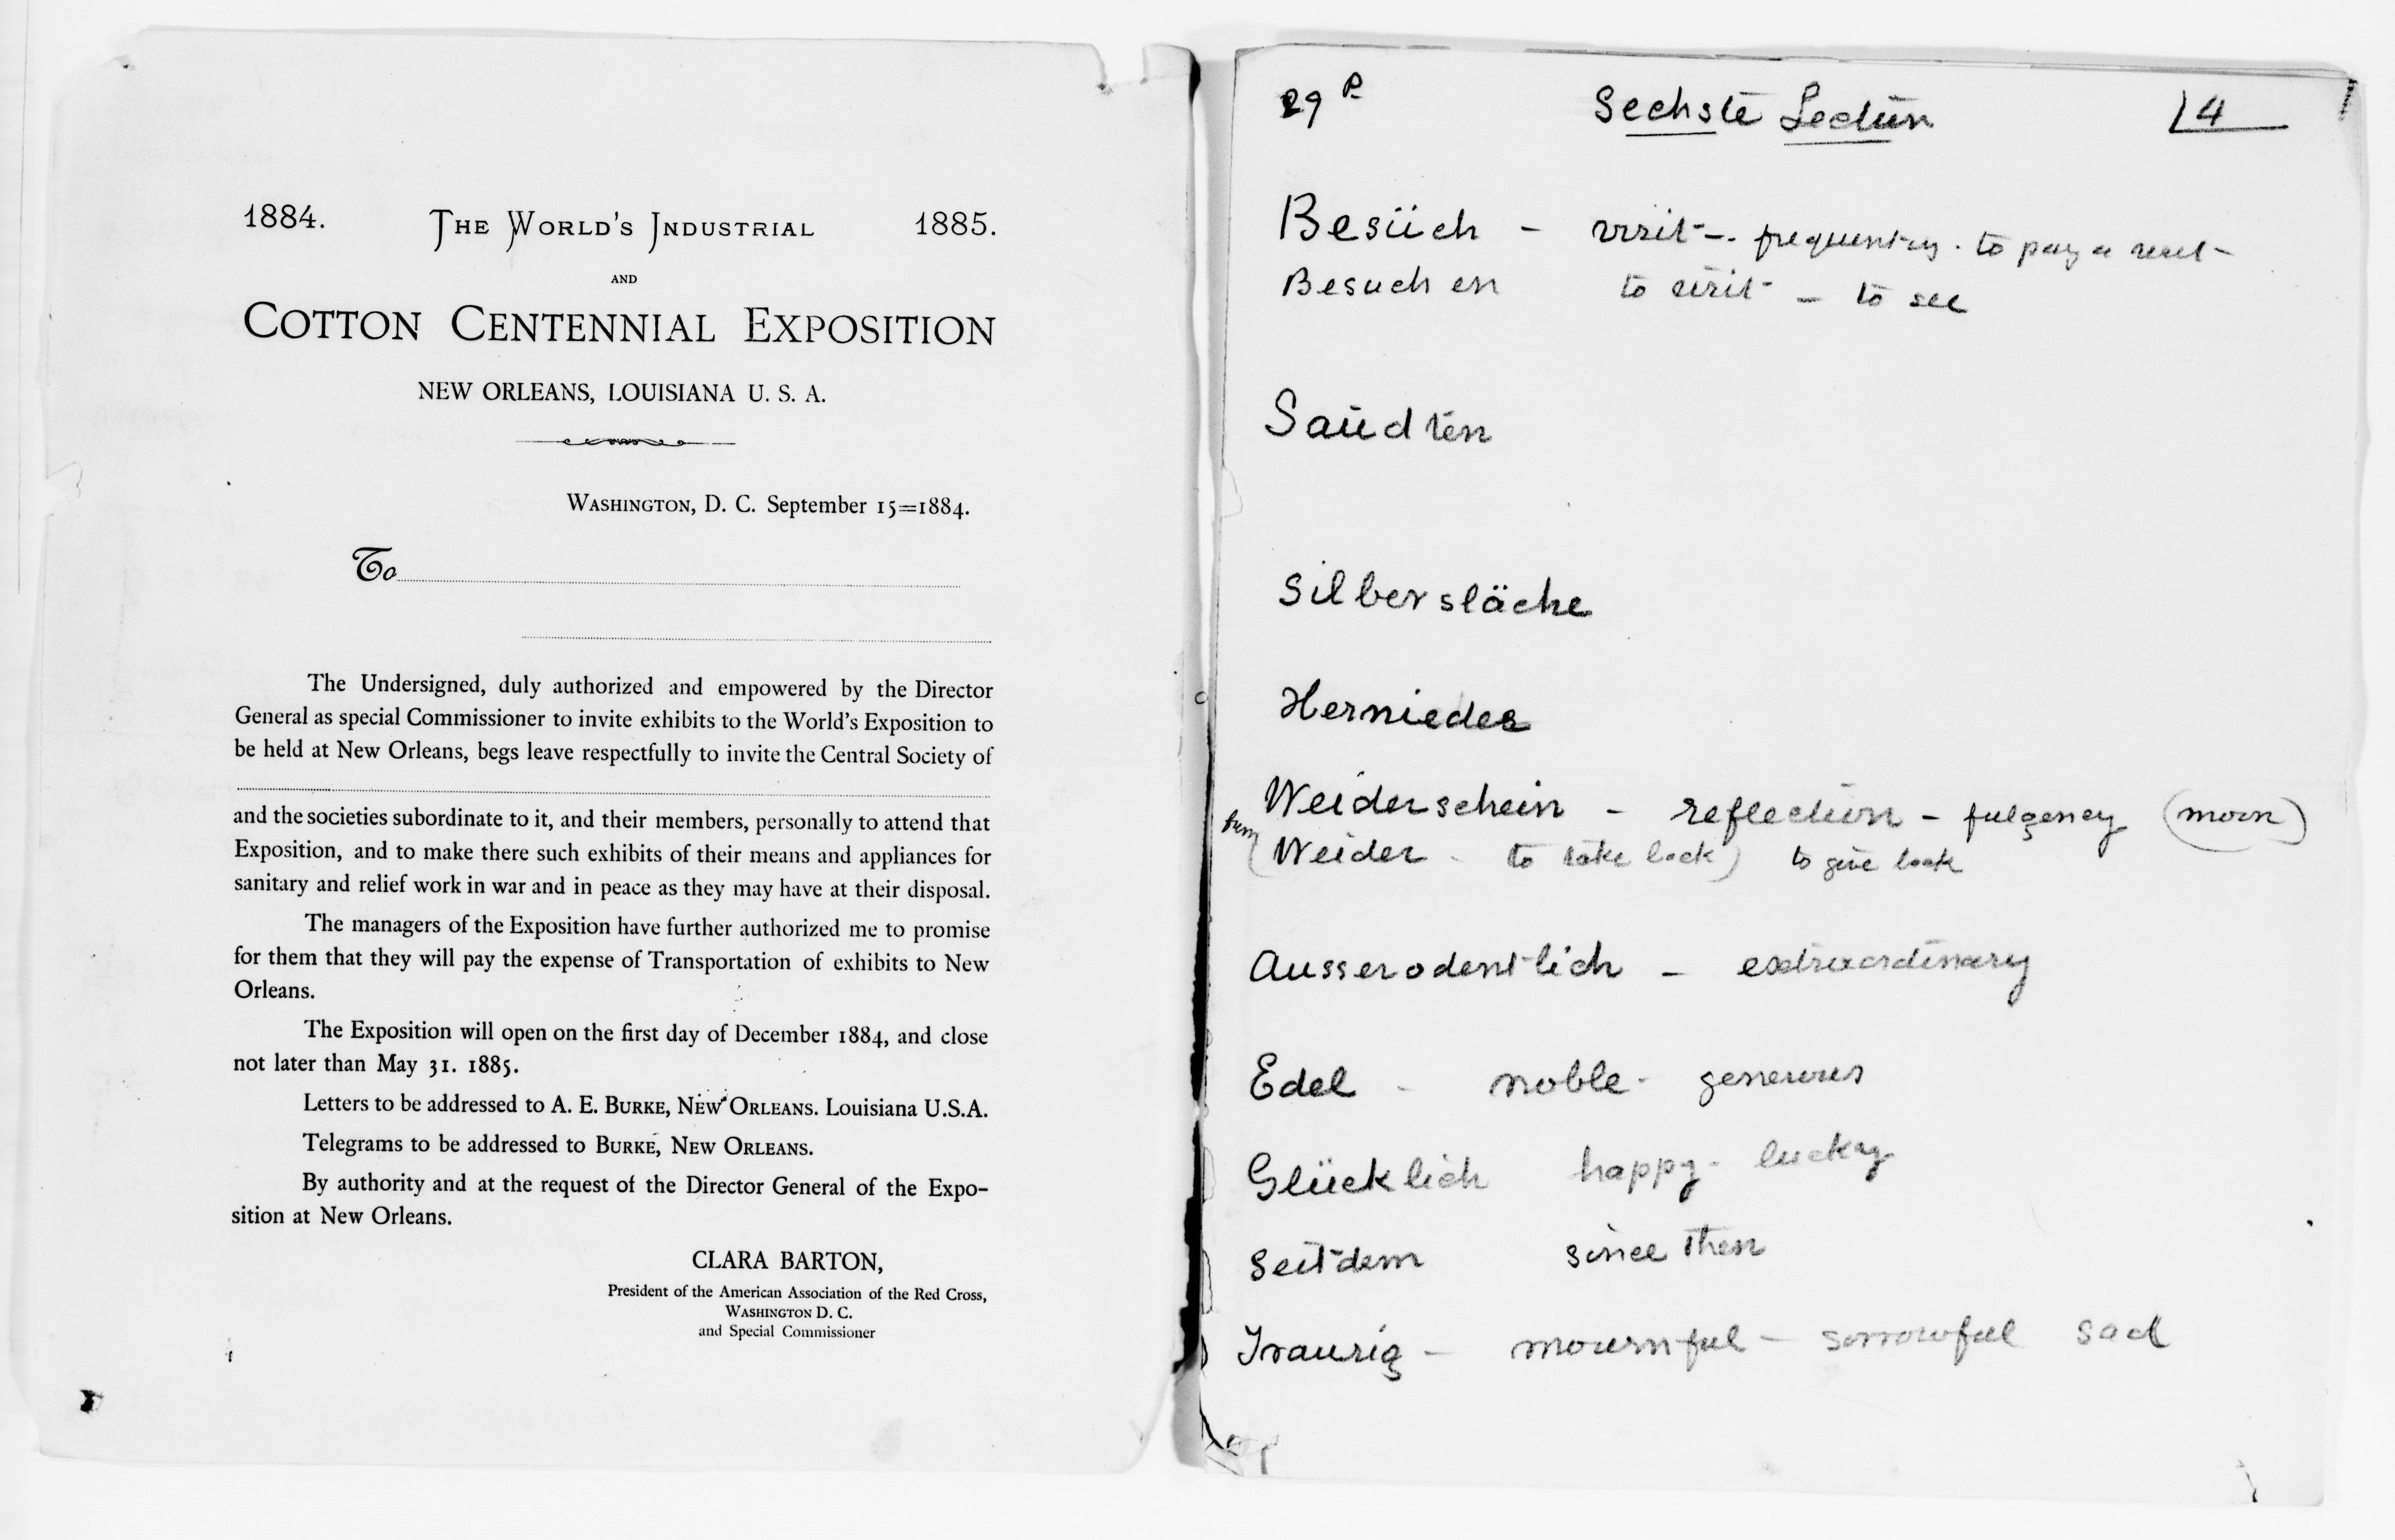 1884. THE WORLD'S INDUSTRIAL 1885.
AND
COTTON CENTENNIAL EXPOSITION
NEW ORLEANS, LOUISIANA U. S. A.
WASHINGTON, D. C. September 15=1884.
To
The Undersigned, duly authorized and empowered by the Director
General as special Commissioner to invite exhibits to the World's Exposition to
be held at New Orleans, begs leave respectfully to invite the Central Society of
and the societies subordinate to it, and their members, personally to attend that
Exposition, and to make there such exhibits of their means and appliances for
sanitary and relief work in war and in peace as they may have at their disposal.
The managers of the Exposition have further authorized me to promise
for them that they will pay the expense of Transportation of exhibits to New
Orleans.
The Exposition will open on the first day of December 1884, and close
not later than May 31. 1885.
Letters to be addressed to A. E. BURKE, NEW ORLEANS. Louisiana U.S.A.
Telegrams to be addressed to BURKE, NEW ORLEANS.
By authority and at the request of the Director General of the Expo-
sition at New Orleans.
CLARA BARTON,
President of the American Association of the Red Cross,
WASHINGTON D. C.
and Special Commissioner
29 P. Sechste Lection 4
Besüch - visit - frequenting. to pay a visit
Besuchen to visit - to see
Saüdten
Silbersläche
Hernieder
Weiderschein - reflection - fulgency (moon)
(Weider - to take back) to give back
Ausserodentlich - extraordinary
Edel - noble - generous
Glücklich happy - lucky
Seitdem since then
Traurig - mournful - sorrowful sad